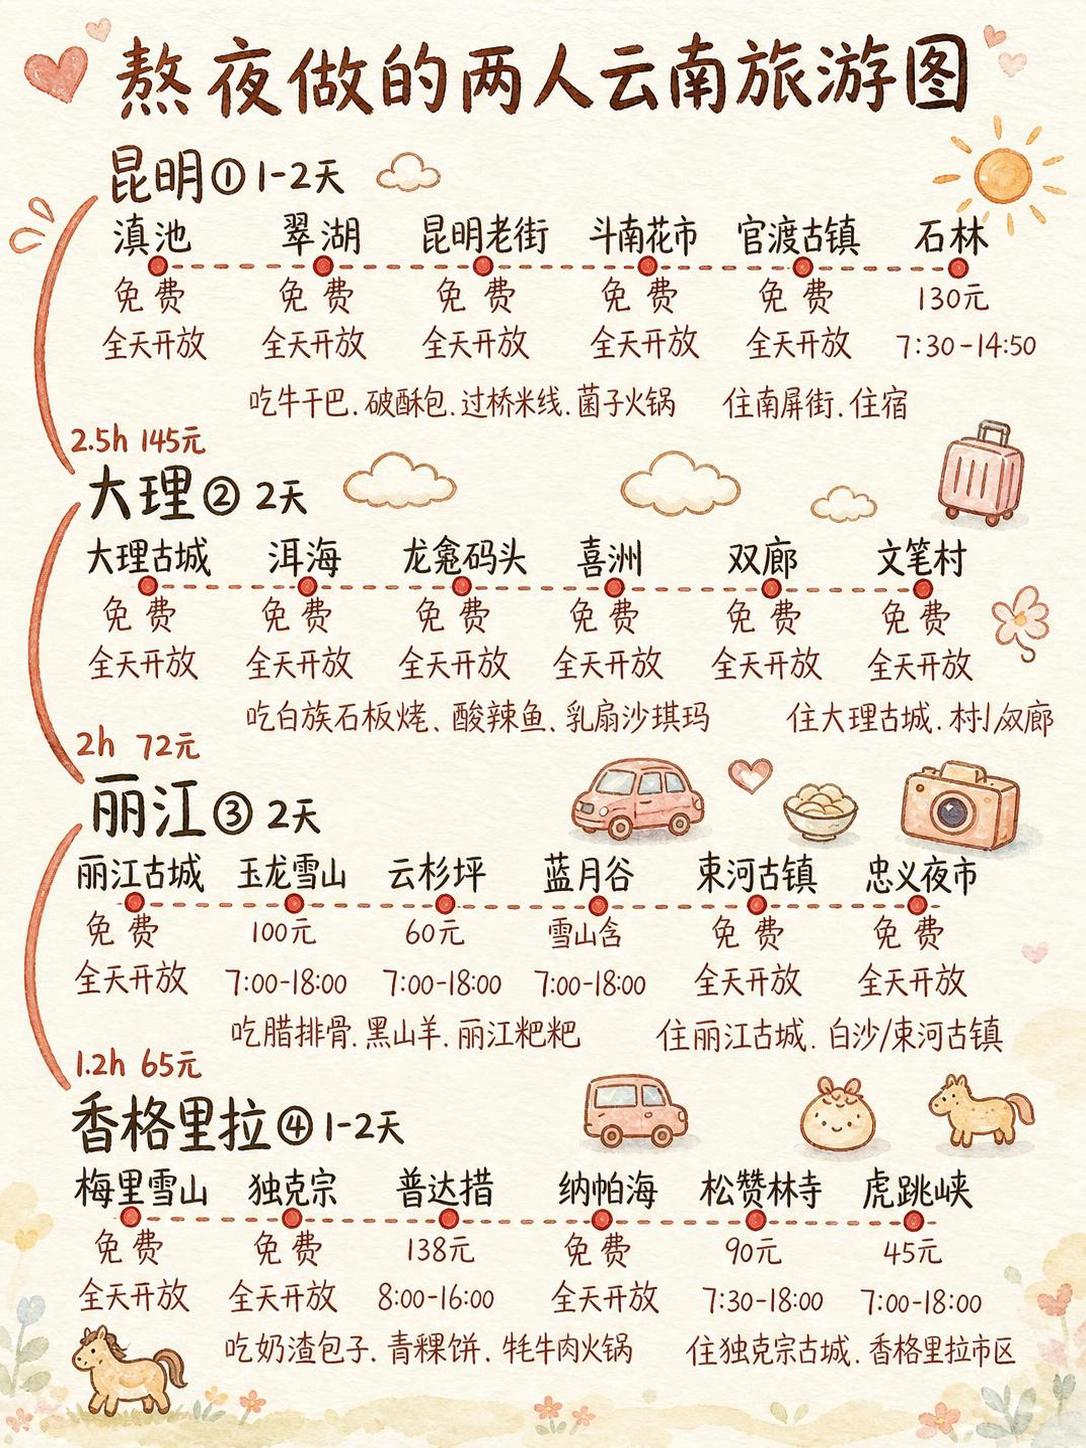 熬夜做的两人云南旅游图
昆明① 1-2天
滇池 翠湖 昆明老街 斗南花市 官渡古镇 石林
免费 免费 免费 免费 免费 130元
全天开放 全天开放 全天开放 全天开放 全天开放 7:30-14:50
吃牛干巴.破酥包.过桥米线.菌子火锅 住南屏街.住宿
2.5h 145元
大理② 2天
大理古城 洱海 龙龛码头 喜洲 双廊 文笔村
免费 免费 免费 免费 免费 免费
全天开放 全天开放 全天开放 全天开放 全天开放 全天开放
吃白族石板烤、酸辣鱼、乳扇沙琪玛 住大理古城.村/双廊
2h 72元
丽江③ 2天
丽江古城 玉龙雪山 云杉坪 蓝月谷 束河古镇 忠义夜市
免费 100元 60元 雪山含 免费 免费
全天开放 7:00-18:00 7:00-18:00 7:00-18:00 全天开放 全天开放
吃腊排骨.黑山羊.丽江粑粑 住丽江古城.白沙/束河古镇
1.2h 65元
香格里拉④ 1-2天
梅里雪山 独克宗 普达措 纳帕海 松赞林寺 虎跳峡
免费 免费 138元 免费 90元 45元
全天开放 全天开放 8:00-16:00 全天开放 7:30-18:00 7:00-18:00
吃奶渣包子.青稞饼.牦牛肉火锅 住独克宗古城.香格里拉市区